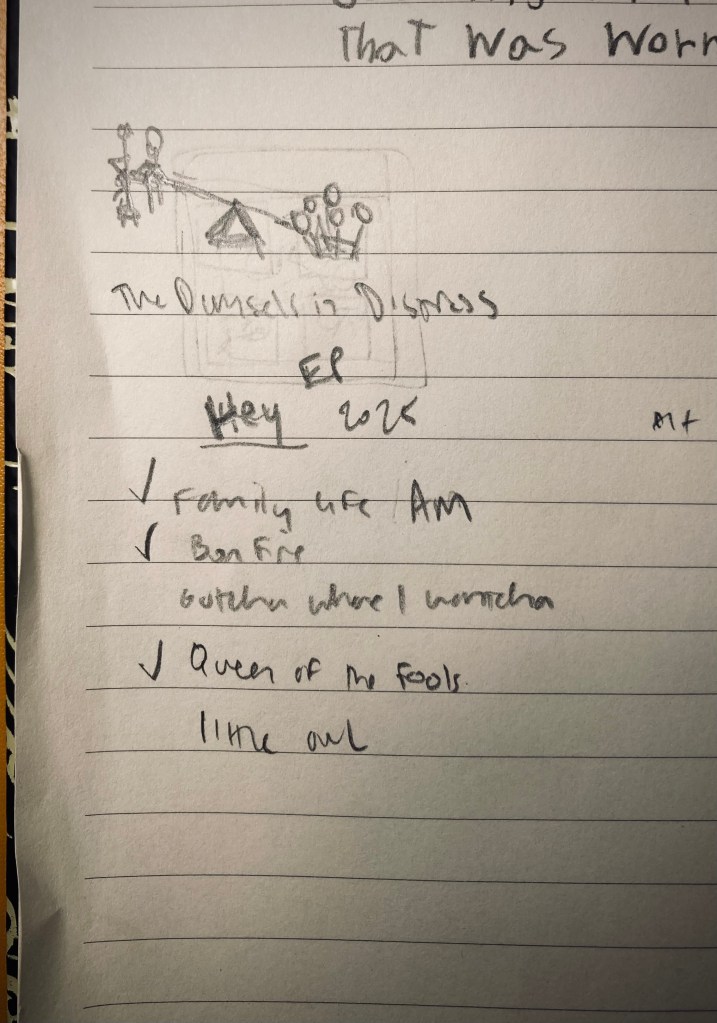 That was worr
The Dumsels in Distress
EP
Hey 2025
✓ Family Life AM
✓ Bonfire
Gotcha where I wantcha
✓ Queen of the Fools.
little owl